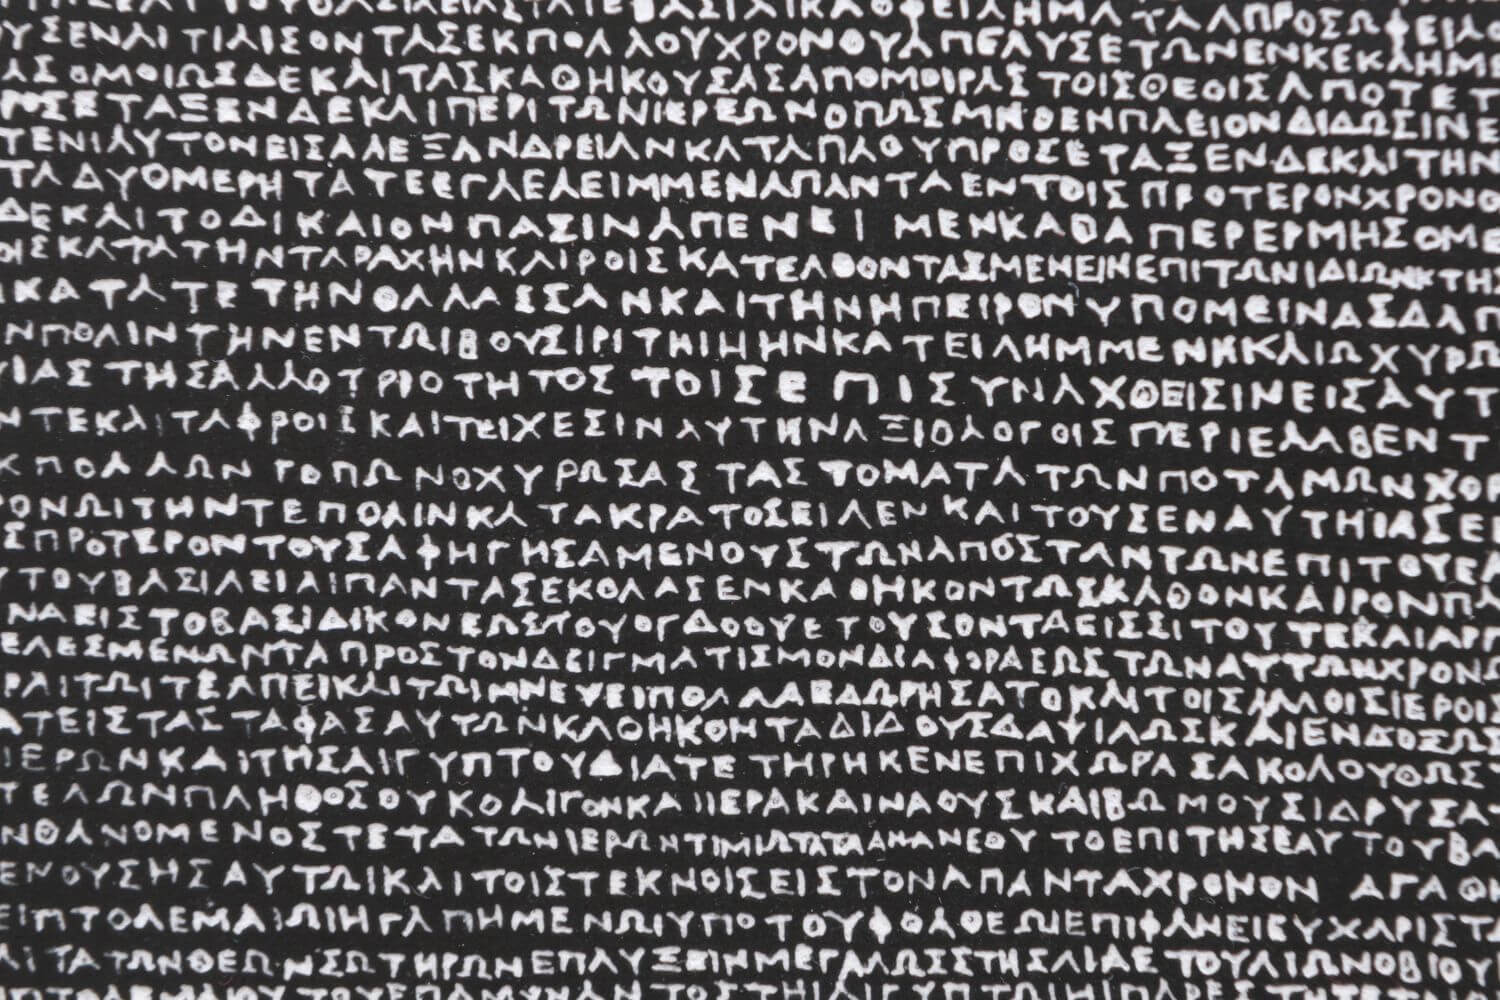 ΒΑΣΙΛΙΚΑΟΦΕΙΛΗΜΑΤΑΑΠΡΟΣΩΦΕΙΛΟ
ΥΣΕΝΑΙΤΙΑΙΣΟΝΤΑΣΕΚΠΟΛΛΟΥΧΡΟΝΟΥΑΠΕΛΥΣΕΤΩΝΕΝΚΕΚΛΗΜ
ΑΣΟΜΟΙΩΣΔΕΚΑΙΤΑΣΚΑΘΗΚΟΥΣΑΣΑΠΟΜΟΙΡΑΣΤΟΙΣΘΕΟΙΣΑΠΟΤΕΤ
ΡΟΣΕΤΑΞΕΝΔΕΚΑΙΠΕΡΙΤΩΝΙΕΡΕΩΝΟΠΩΣΜΗΘΕΝΠΛΕΙΟΝΔΙΔΩΣΙΝΕ
ΤΕΝΙΑΥΤΟΝΕΙΣΑΛΕΞΑΝΔΡΕΙΑΝΚΑΤΑΠΛΟΥΠΡΟΣΕΤΑΞΕΝΔΕΚΑΙΤΗΝ
ΤΑΔΥΟΜΕΡΗΤΑΤΕΕΓΛΕΛΕΙΜΜΕΝΑΠΑΝΤΑΕΝΤΟΙΣΠΡΟΤΕΡΟΝΧΡΟΝΟ
ΔΕΚΑΙΤΟΔΙΚΑΙΟΝΠΑΣΙΝΑΠΕΝΕΙΜΕΝΚΑΘΑΠΕΡΕΡΜΗΣΟΜΕ
ΟΙΣΚΑΤΑΤΗΝΤΑΡΑΧΗΝΚΑΙΡΟΙΣΚΑΤΕΛΘΟΝΤΑΣΜΕΝΕΙΝΕΠΙΤΩΝΙΔΙΩΝΚΤΗΣ
ΚΑΤΑΤΕΤΗΝΘΑΛΑΣΣΑΝΚΑΙΤΗΝΗΠΕΙΡΟΝΥΠΟΜΕΙΝΑΣΔΑΠ
ΝΠΟΛΙΝΤΗΝΕΝΤΩΙΒΟΥΣΙΡΙΤΗΙΗΗΝΚΑΤΕΙΛΗΜΜΕΝΗΚΑΙΩΧΥΡΩ
ΙΑΣΤΗΣΑΛΛΟΤΡΙΟΤΗΤΟΣΤΟΙΣΕΠΙΣΥΝΑΧΘΕΙΣΙΝΕΙΣΑΥΤ
ΝΤΕΚΑΙΤΑΦΡΟΙΣΚΑΙΤΕΙΧΕΣΙΝΑΥΤΗΝΑΞΙΟΛΟΓΟΙΣΠΕΡΙΕΛΑΒΕΝΤ
ΚΠΟΛΛΩΝΤΟΠΩΝΟΧΥΡΩΣΑΣΤΑΣΤΟΜΑΤΑΤΩΝΠΟΤΑΜΩΝΧΟΡ
ΟΝΩΙΤΗΝΤΕΠΟΛΙΝΚΑΤΑΚΡΑΤΟΣΕΙΛΕΝΚΑΙΤΟΥΣΕΝΑΥΤΗΙΑΣΕ
ΣΠΡΟΤΕΡΟΝΤΟΥΣΑΦΗΓΗΣΑΜΕΝΟΥΣΤΩΝΑΠΟΣΤΑΝΤΩΝΕΠΙΤΟΥΕΑ
ΥΤΟΥΒΑΣΙΛΕΙΑΙΠΑΝΤΑΣΕΚΟΛΑΣΕΝΚΑΘΗΚΟΝΤΩΣΚΑΘΟΝΚΑΙΡΟΝΠΑ
ΝΑΕΙΣΤΟΒΑΣΙΛΙΚΟΝΕΩΣΤΟΥΟΓΔΟΟΥΕΤΟΥΣΟΝΤΑΕΙΣΣΙΤΟΥΤΕΚΑΙΑΡΓ
ΕΛΕΣΜΕΝΩΝΤΑΠΡΟΣΤΟΝΔΕΙΓΜΑΤΙΣΜΟΝΔΙΑΦΟΡΑΕΩΣΤΩΝΑΥΤΩΝΧΡΟΝΩ
ΡΑΙΤΩΙΤΕΑΠΕΙΚΑΙΤΩΙΜΝΕΥΕΙΠΟΛΛΑΕΔΩΡΗΣΑΤΟΚΑΙΤΟΙΣΑΛΛΟΙΣΙΕΡΟΙΣ
ΑΤΕΙΣΤΑΣΤΑΦΑΣΑΥΤΩΝΚΑΘΗΚΟΝΤΑΔΙΔΟΥΣΔΑΨΙΛΩΣΚΑΙΕΝΔΟΞΩΣ
ΙΕΡΩΝΚΑΙΤΗΣΑΙΓΥΠΤΟΥΔΙΑΤΕΤΗΡΗΚΕΝΕΠΙΧΩΡΑΣΑΚΟΛΟΥΘΩΣ
ΤΕΛΩΝΠΛΗΘΟΣΟΥΚΟΛΙΓΟΝΚΑΙΙΕΡΑΚΑΙΝΑΟΥΣΚΑΙΒΩΜΟΥΣΙΔΡΥΣΑ
ΝΘΑΝΟΜΕΝΟΣΤΕΤΑΤΩΝΙΕΡΩΝΤΙΜΙΩΤΑΤΑΑΝΑΝΕΟΥΤΟΕΠΙΤΗΣΕΑΥΤΟΥΒΑ
ΕΝΟΥΣΗΣΑΥΤΩΙΚΑΙΤΟΙΣΤΕΚΝΟΙΣΕΙΣΤΟΝΑΠΑΝΤΑΧΡΟΝΟΝ ΑΓΑΘ
ΕΙΠΤΟΛΕΜΑΙΩΙΗΓΑΠΗΜΕΝΩΙΥΠΟΤΟΥΦΘΑΘΕΩΙΕΠΙΦΑΝΕΙΕΥΧΑΡΙΣΤ
ΑΙΤΑΤΩΝΘΕΩΝΣΩΤΗΡΩΝΕΠΑΥΞΕΙΝΜΕΓΑΛΩΣΣΤΗΣΑΙΔΕΤΟΥΑΙΩΝΟΒΙΟΥ
ΠΤΟΛΕΜΑΙΟΥΤΟΥΕΠΑΜΥΝΑΝΤΟΣΤΗΙΑΙΓΥΠΤΩΙΗΙΠΑΡΕΣΤΗΞΕΤΑΙ